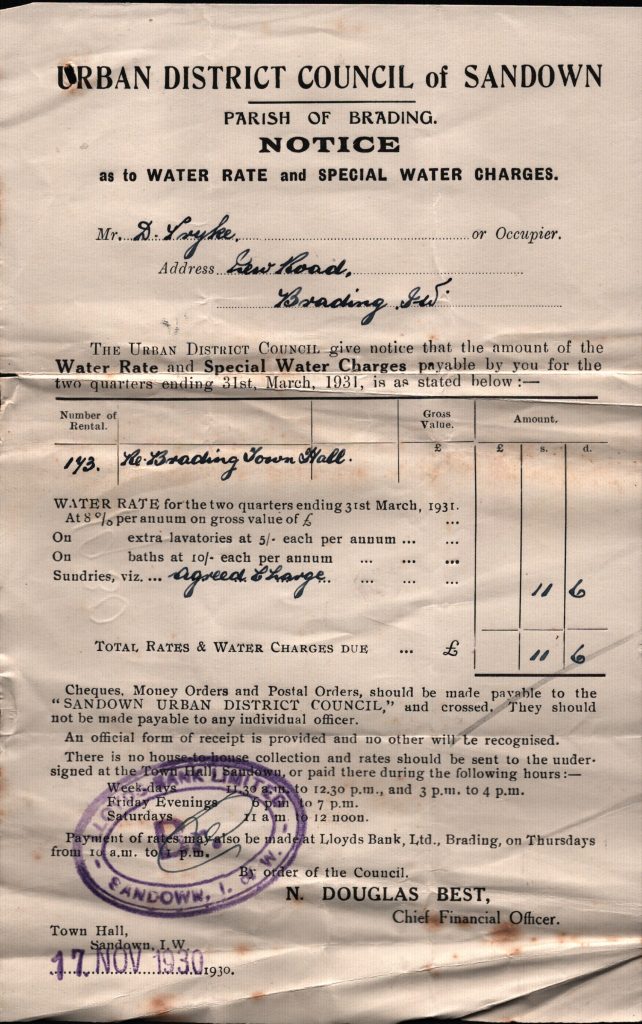 URBAN DISTRICT COUNCIL of SANDOWN
PARISH OF BRADING.
NOTICE
as to WATER RATE and SPECIAL WATER CHARGES.
Mr. D. Pryke. or Occupier.
Address New Road,
Brading I.W.
THE URBAN DISTRICT COUNCIL give notice that the amount of the
Water Rate and Special Water Charges payable by you for the
two quarters ending 31st, March, 1931, is as stated below :—
Number of Rental. Gross Value. Amount.
£ £ s. d.
193. Re Brading Town Hall.
WATER RATE for the two quarters ending 31st March, 1931.
At 8 % per annum on gross value of £ ...
On extra lavatories at 5/- each per annum ... ...
On baths at 10/- each per annum ... ... ...
Sundries, viz. ... Agreed Charge. ... ... ... 11 6
TOTAL RATES & WATER CHARGES DUE ... £ 11 6
Cheques, Money Orders and Postal Orders, should be made payable to the
"SANDOWN URBAN DISTRICT COUNCIL," and crossed. They should
not be made payable to any individual officer.
An official form of receipt is provided and no other will be recognised.
There is no house-to-house collection and rates should be sent to the under-
signed at the Town Hall, Sandown, or paid there during the following hours :—
Week-days 11.30 a.m. to 12.30 p.m., and 3 p.m. to 4 p.m.
Friday Evenings 6 p.m to 7 p.m.
Saturdays 11 a.m to 12 noon.
Payment of rates may also be made at Lloyds Bank, Ltd., Brading, on Thursdays
from 10 a.m. to 1 p.m.
LLOYDS BANK LIMITED
SANDOWN, I. of W.
By order of the Council.
N. DOUGLAS BEST,
Chief Financial Officer.
Town Hall,
Sandown, I.W.
17 NOV 1930 1930.